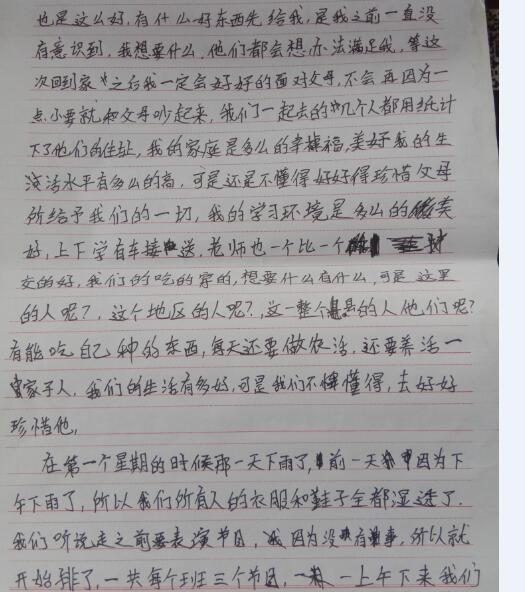 也是这么好,有什么好东西先给我,是我之前一直没
有意识到,我想要什么,他们都会想办法满足我,等这
次回到家之后我一定会好好的面对父母,不会再因为一
点小要就和父母吵起来,我们一起去的几个人都用纸计
下了他们的住址,我的家庭是多么的幸福,美好我的生
活水平有多么的高,可是还是不懂得好好得珍惜父母
所给予我们的一切,我的学习环境是多么的美
好,上下学有车接送,老师也一个比一个
交的好,我们的吃的穿的,想要什么有什么,可是这里
的人呢?,这个地区的人呢?,这一整个县的人他们呢?
有能吃自己种的东西,每天还要做农活,还要养活一
家子人,我们的生活有多好,可是我们不懂得,去好好
珍惜他,
在第一个星期的时候那一天下雨了,前一天因为下
午下雨了,所以我们所有人的衣服和鞋子全都湿透了.
我们听说走之前要表演节目,我因为没有事,所以就
开始排了,一共每个班三个节目,一上午下来我们